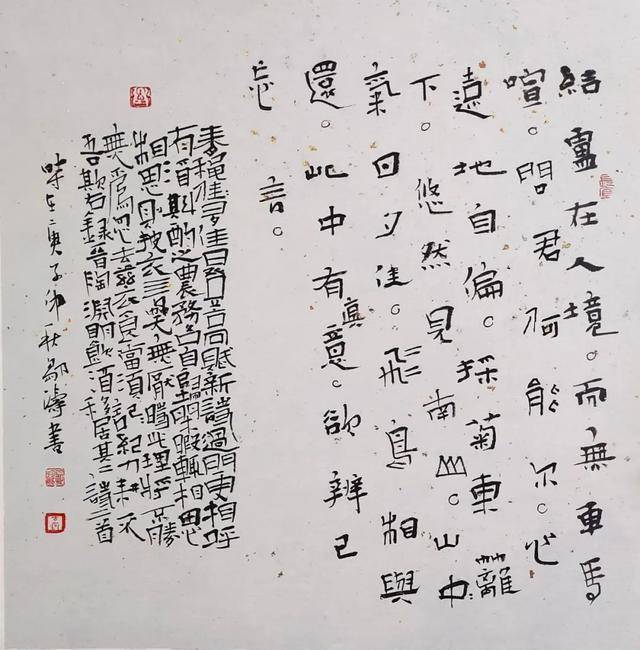 結盧在人境。而無車馬
喧。問君何能尔。心
遠地自偏。採菊東籬
下。悠然見南山。山中
氣日夕佳。飛鳥相與
還。此中有真意。欲辨已
忘言。
春穐多佳日登高賦新詩過門更相呼
有酒斟酌之農務各自歸閒暇輒相思
相思則披衣言笑無厭時此理將不勝
無為忽去茲衣食當須紀力耕不
吾欺右錄晉陶淵明飲酒移居其二詩二首
時在庚子中秋鄒濤書